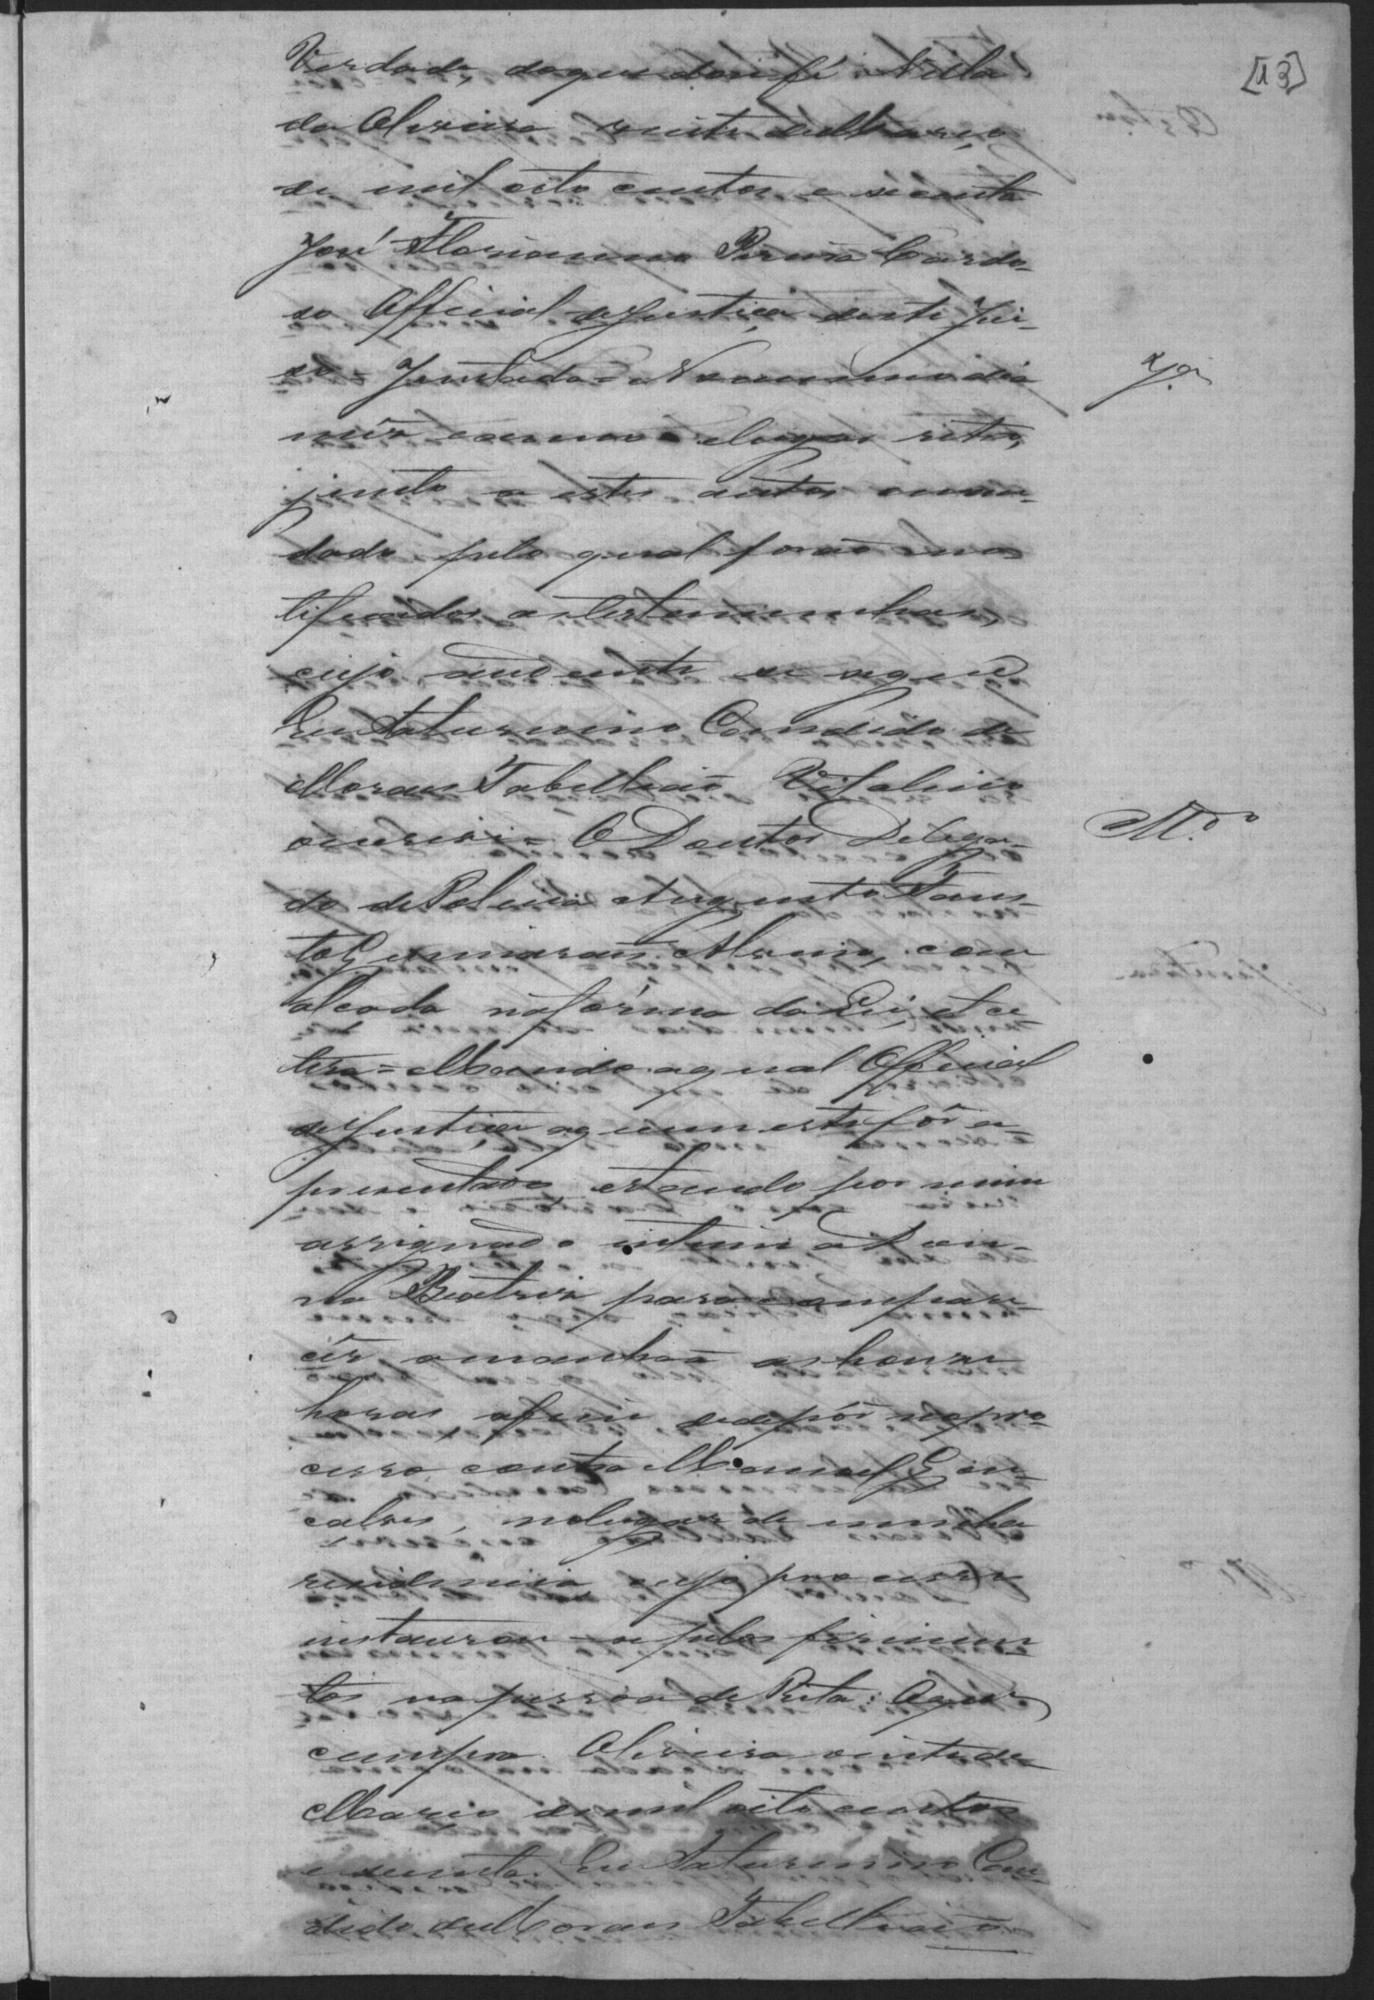 [13]
Verdade, do que dou fé. Villa
da Oliveira vinte de Março
de mil oito centos e secenta
José Florianno Pereira Cardo-
so Official de Justiça deste Jui-
so = Juntada = No mesmo dia
mêz e anno e lugar retro,
junto a estes autos o man-
dado pelo qual forão no-
tificadas as testemunhas,
cujo
Eu Saturnino Candido de
Moraes Tabellião Vitalicio
o escrevi = O Doutor Delega-
do de Policia Augusto Faus-
to Guimarães Alvim, com
alçada na fórma da Lei, et ce-
tera = Mando a qual Official
de Justiça a quem este fôr a-
presentado, estando por mim
assignado intime a Don-
na Beatriz para compare-
cêr amanhaã as honze
horas, afim de depôr no pro-
cesso contra Manoel Gon-
calves, no lugar de minha
residencia, cujo processo
instaurou-se pelos ferimen-
tos na pessoa de Rita: O que
cumpra. Oliveira vinte de
Março de mil oito centos
e secenta. Eu Saturnino Can-
dido de Moraes Tabellião
Jda
Mdo